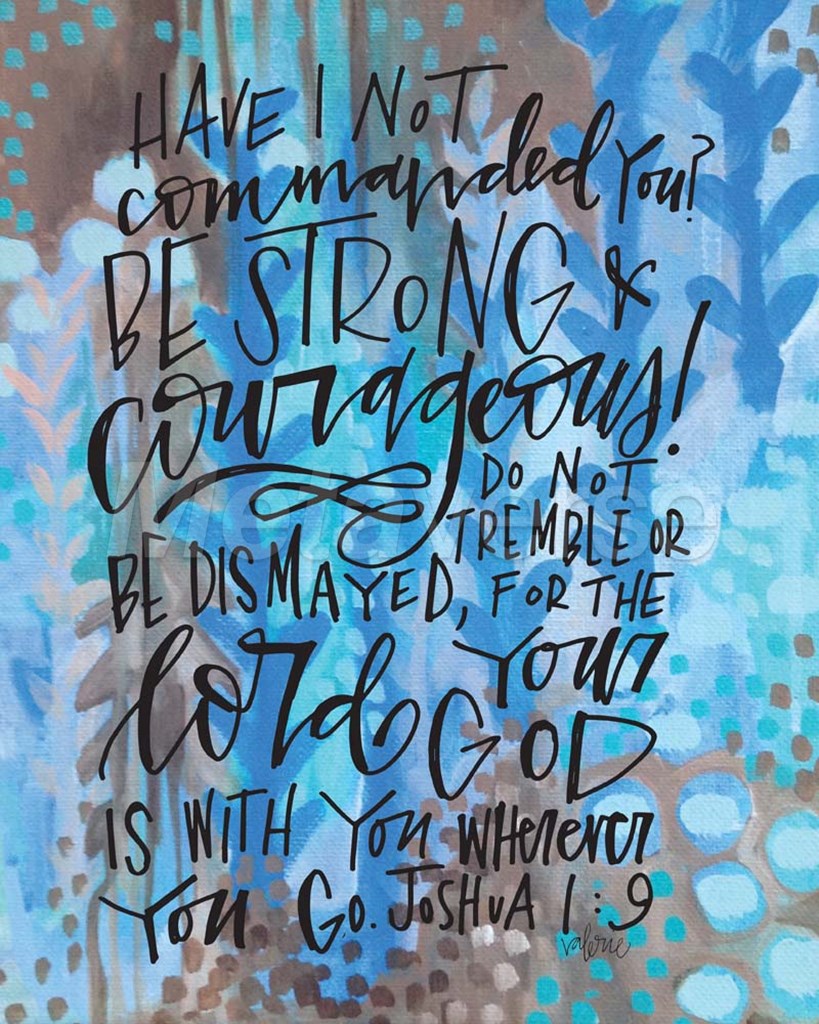 HAVE I NOT
commanded You?
BE STRONG &
courageous!
DO NOT
TREMBLE OR
BE DISMAYED, FOR THE
lord Your
GOD
IS WITH YOU WHerever
YOU GO. JOSHUA 1:9
valerie